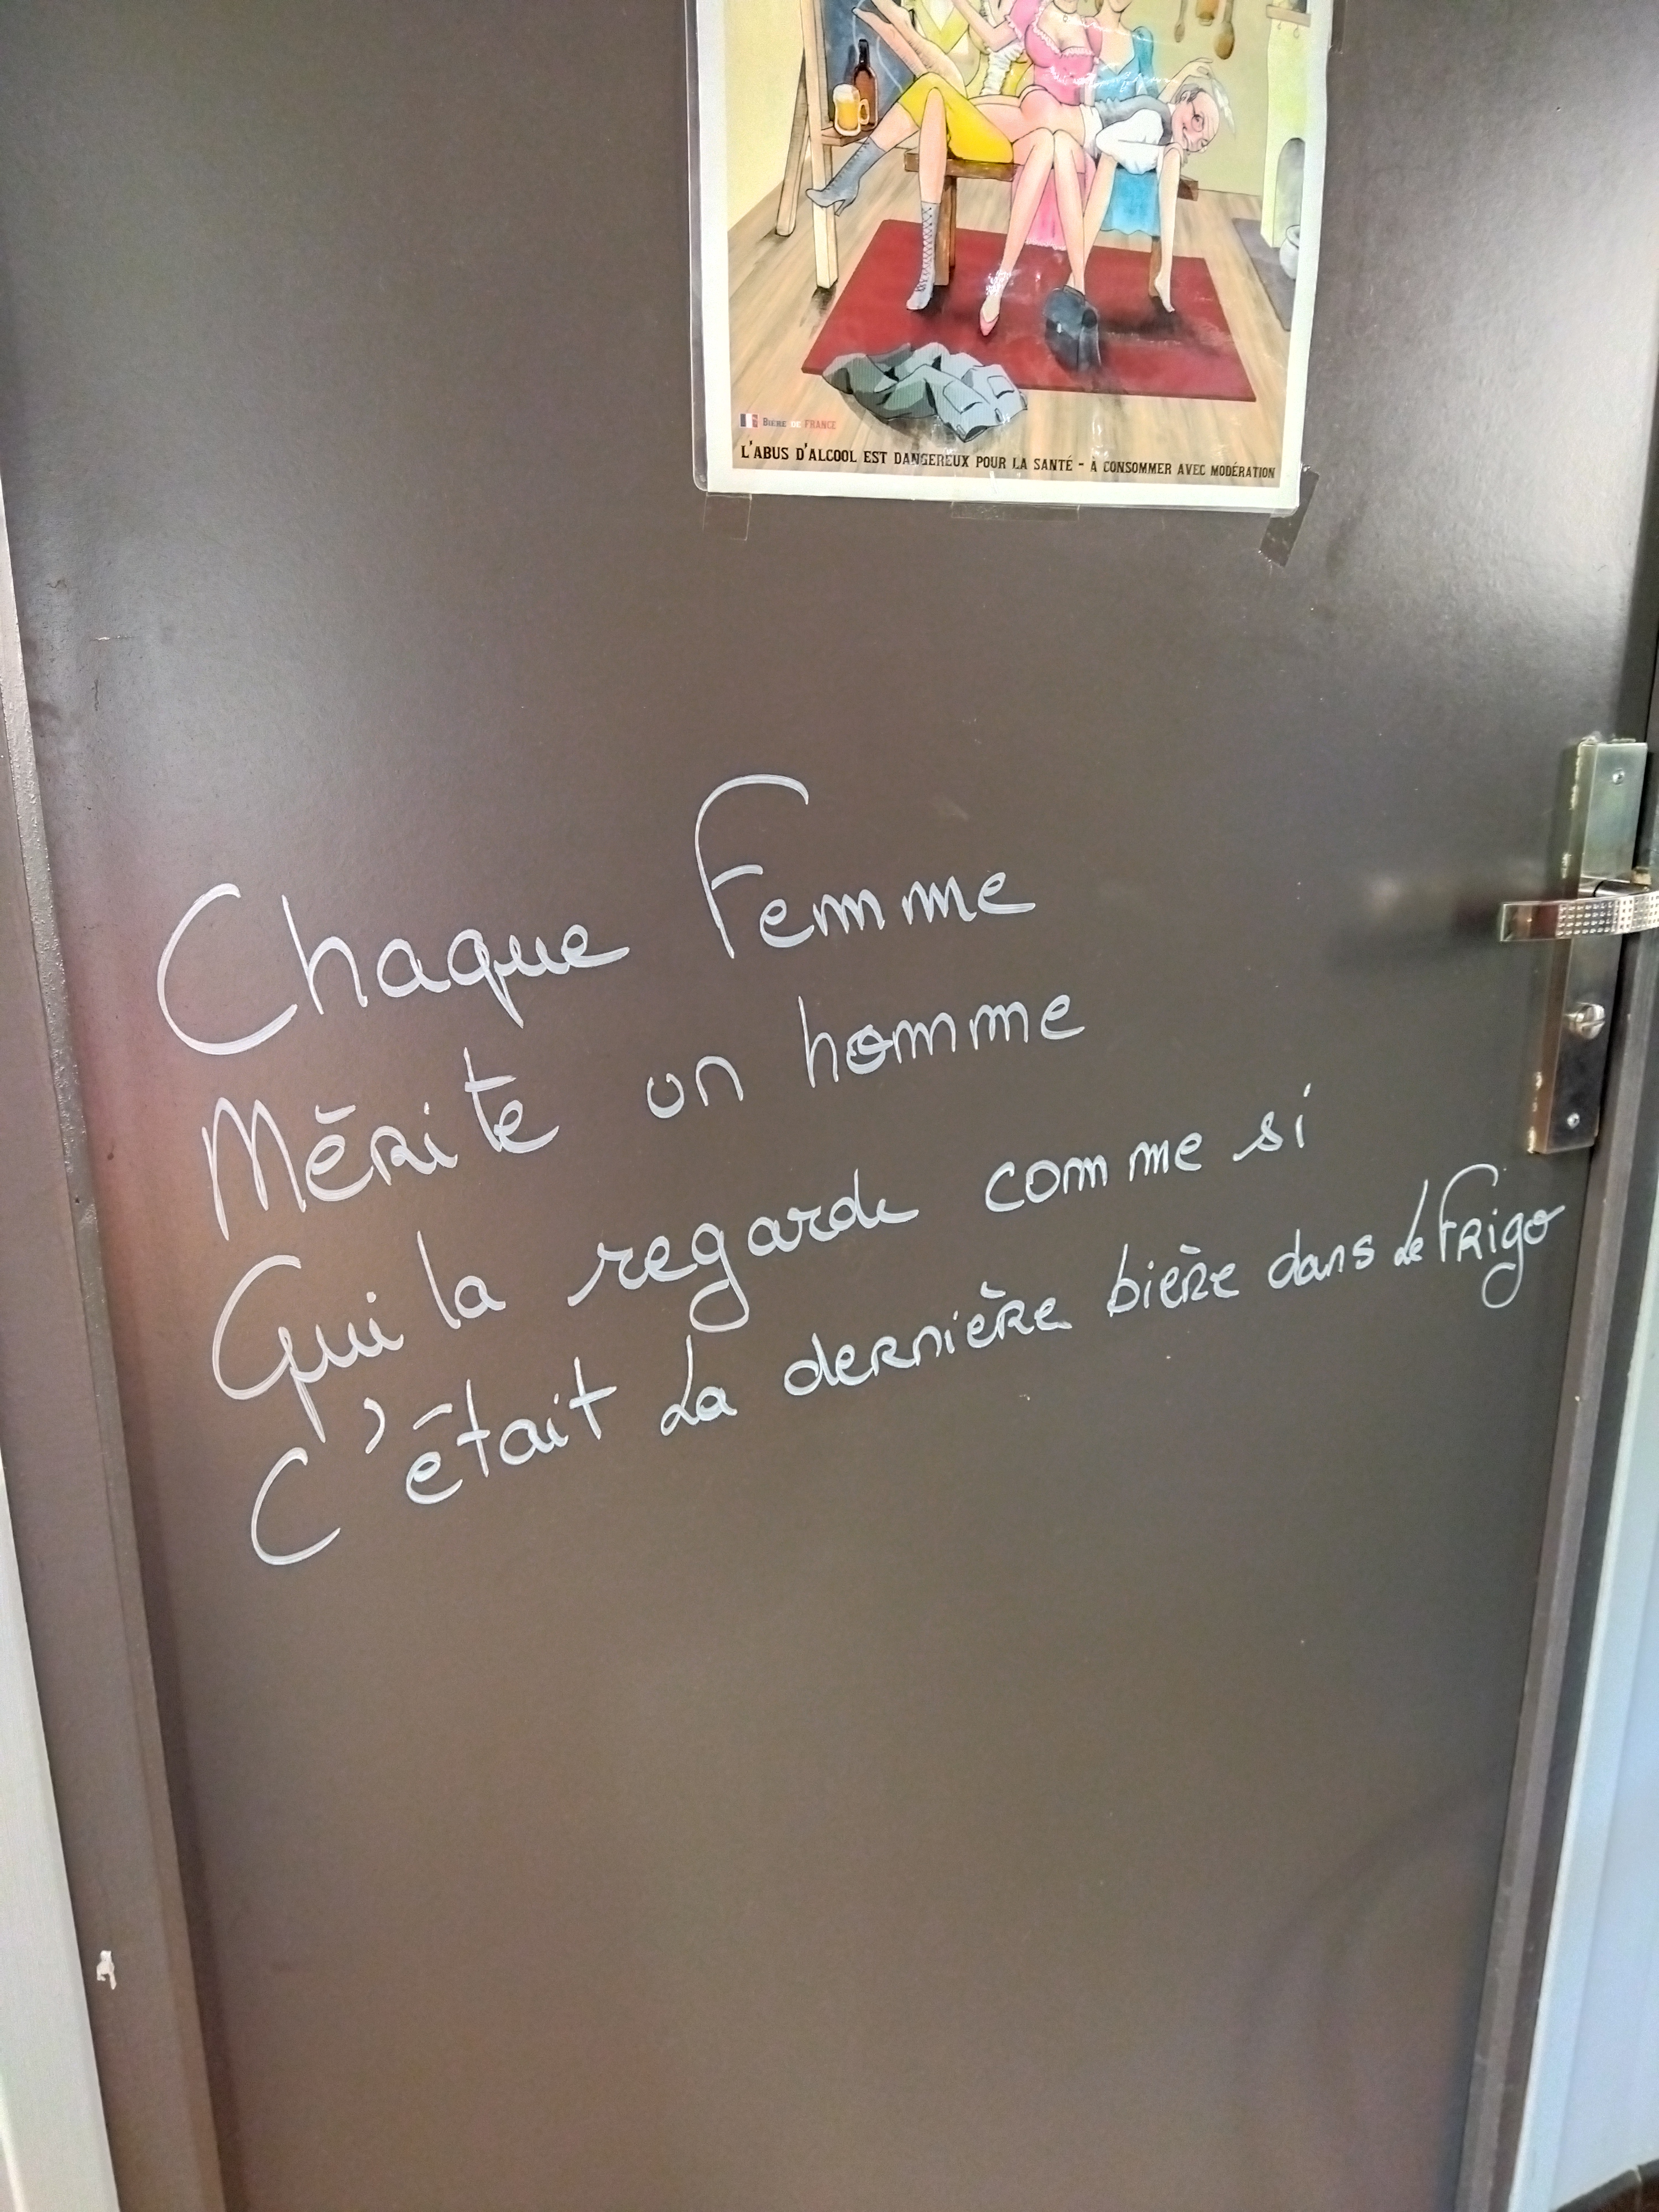 BIÈRE DE FRANCE
L'ABUS D'ALCOOL EST DANGEREUX POUR LA SANTÉ - À CONSOMMER AVEC MODÉRATION
Chaque Femme
Mérite un homme
Qui la regarde comme si
C'était La dernière bière dans Le Frigo